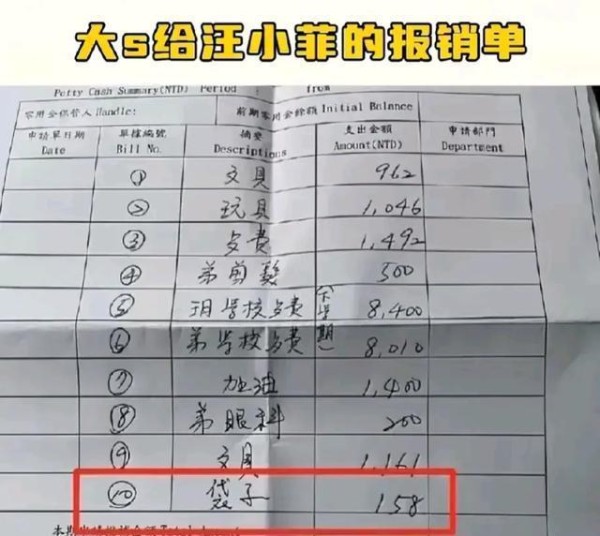 大s给汪小菲的报销单
Petty Cash Summary(NTD) Period : from
零用金保管人Handle: 前期零用金餘額 Initial Balance
申請單日期 單據編號 摘要 支出金額 申請部門
Date Bill No. Descriptions Amount(NTD) Department
① 文具 962
② 玩具 1,046
③ 餐費 1,492
④ 弟剪髮 500
⑤ 玥学校餐費 (下学期) 8,400
⑥ 弟学校餐費 8,010
⑦ 加油 1,400
⑧ 弟眼科 200
⑨ 文具 1,161
⑩ 袋子 158